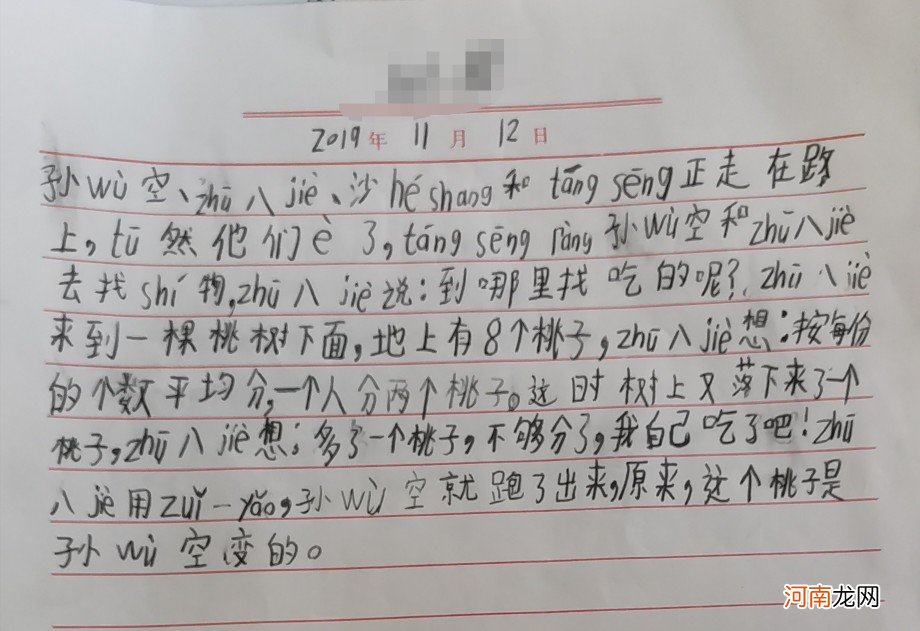 2019年 11月 12日
孙wù空、zhū八jiè、沙hé shang和 táng sēng正走在路
上,tū然他们è了,táng sēng ràng 孙wù空和zhū八jiè
去找shí物,zhū八jiè说:到哪里找吃的呢?zhū八jiè
来到一棵桃树下面,地上有8个桃子,zhū八jiè想:按每份
的个数平均分,一个人分两个桃子。这时树上又落下来了一个
桃子,zhū八jiè想:多了一个桃子,不够分了,我自己吃了吧!zhū
八jiè用zuǐ一yǎo,孙wù空就跑了出来,原来,这个桃子是
孙wù空变的。
河南龙网